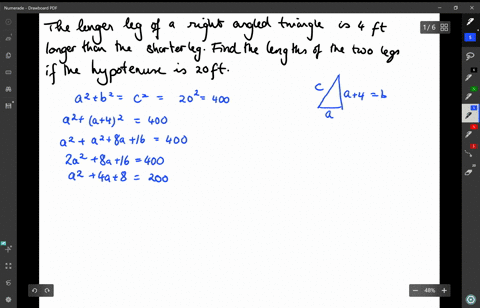 Numerade - Drawboard PDF
1 / 6
The longer leg of a right angled triangle is 4 ft
longer than the shorter leg. Find the lengths of the two legs
if the hypotenuse is 20 ft.
a² + b² = c² = 20² = 400
a² + (a+4)² = 400
a² + a² + 8a + 16 = 400
2a² + 8a + 16 = 400
a² + 4a + 8 = 200
c
a+4 = b
a
48%